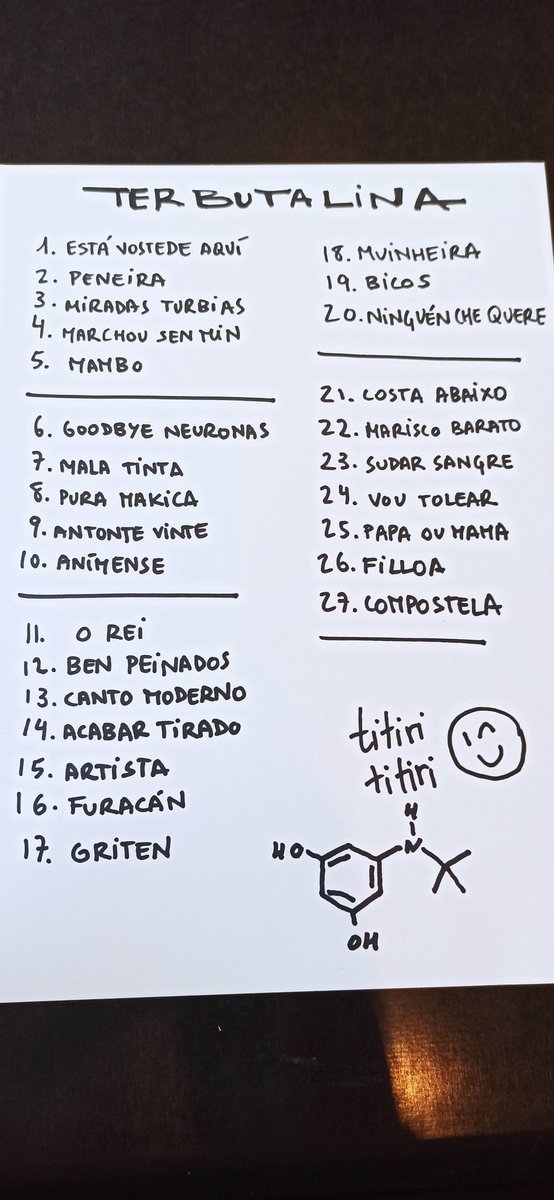 TERBUTALINA
1. ESTÁ VOSTEDE AQUÍ
2. PENEIRA
3. MIRADAS TURBIAS
4. MARCHOU SEN MIN
5. MAMBO
6. GOODBYE NEURONAS
7. MALA TINTA
8. PURA MAKICA
9. ANTONTE VINTE
10. ANÍMENSE
11. O REI
12. BEN PEINADOS
13. CANTO MODERNO
14. ACABAR TIRADO
15. ARTISTA
16. FURACÁN
17. GRITEN
18. MUINHEIRA
19. BICOS
20. NINGUÉN CHE QUERE
21. COSTA ABAIXO
22. MARISCO BARATO
23. SUDAR SANGRE
24. VOU TOLEAR
25. PAPA OU MAMA
26. FILLOA
27. COMPOSTELA
titiri
titiri
H
HO N
OH